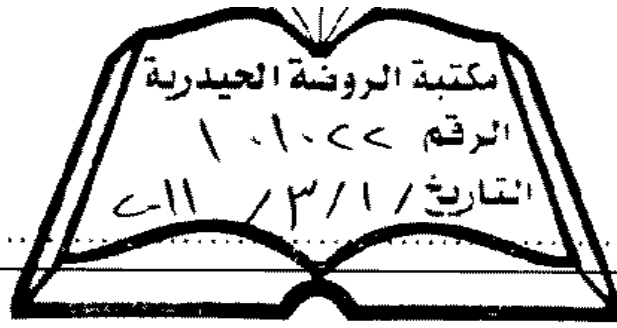 مكتبة الروضة الحيدرية
الرقم ١٠١٠٢٢
التاريخ / ١ / ٣ / ٢٠١١